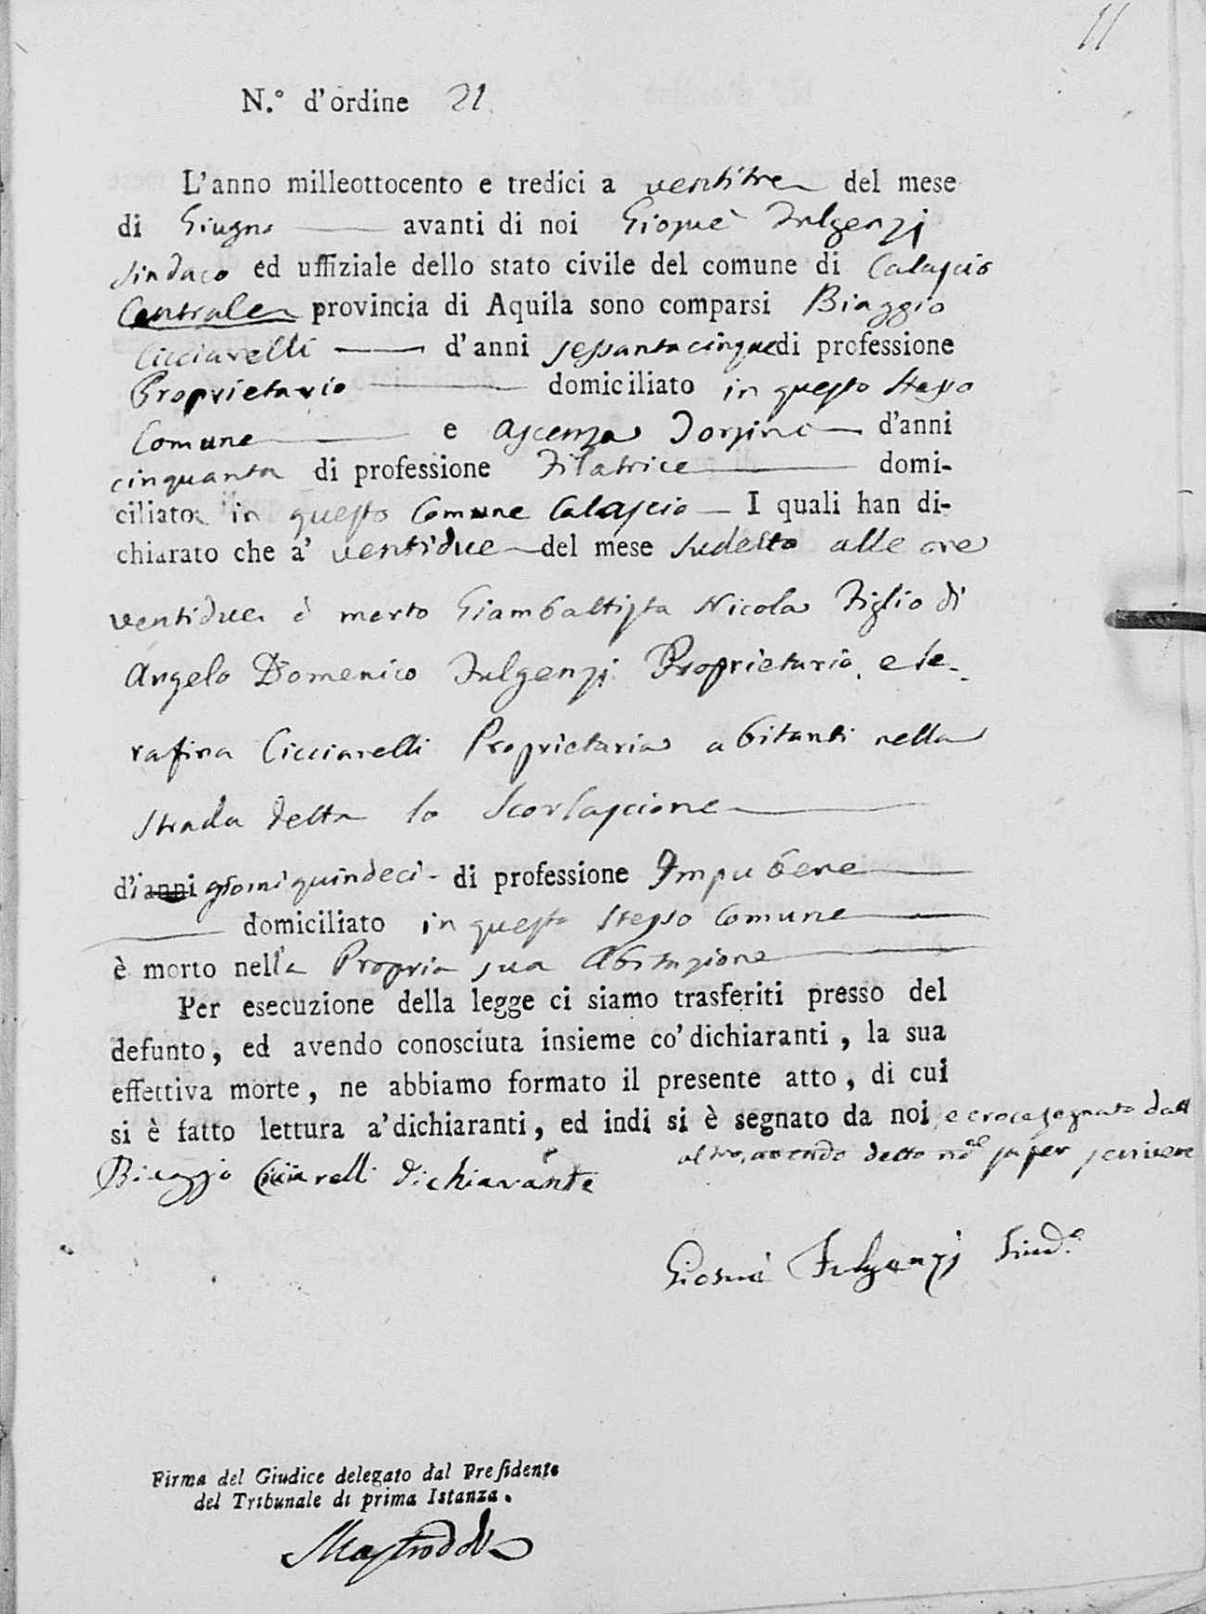 11
N.° d'ordine 21
L'anno milleottocento e tredici a ventitre del mese
di Giugno avanti di noi Giosuè Fulgenzj
Sindaco ed uffiziale dello stato civile del comune di Calascio
Centrale provincia di Aquila sono comparsi Biaggio
Cicciarelli d'anni sessantacinque di professione
Proprietario domiciliato in questo stesso
Comune e Ascenza d'anni
cinquanta di professione Filatrice domi-
ciliato in questo Comune Calascio I quali han di-
chiarato che a' ventidue del mese sudetto alle ore
ventidue è morto Giambattista Nicola Figlio di
Angelo Domenico Fulgenzj Proprietario, e Se-
rafina Cicciarelli Proprietaria abitanti nella
Strada detta lo Scorlascione
d'i anni giorni quindeci - di professione Impubere
domiciliato in questo stesso Comune
è morto nella Propria sua Abitazione
Per esecuzione della legge ci siamo trasferiti presso del
defunto, ed avendo conosciuta insieme co' dichiaranti, la sua
effettiva morte, ne abbiamo formato il presente atto, di cui
si è fatto lettura a' dichiaranti, ed indi si è segnato da noi, e crocesegnato dall
altro, avendo detto non saper scrivere
Biaggio Cicciarelli dichiarante
Giosuè Fulgenzj Sind.°
Firma del Giudice delegato dal Presidente
del Tribunale di prima Istanza.
Mastroddi